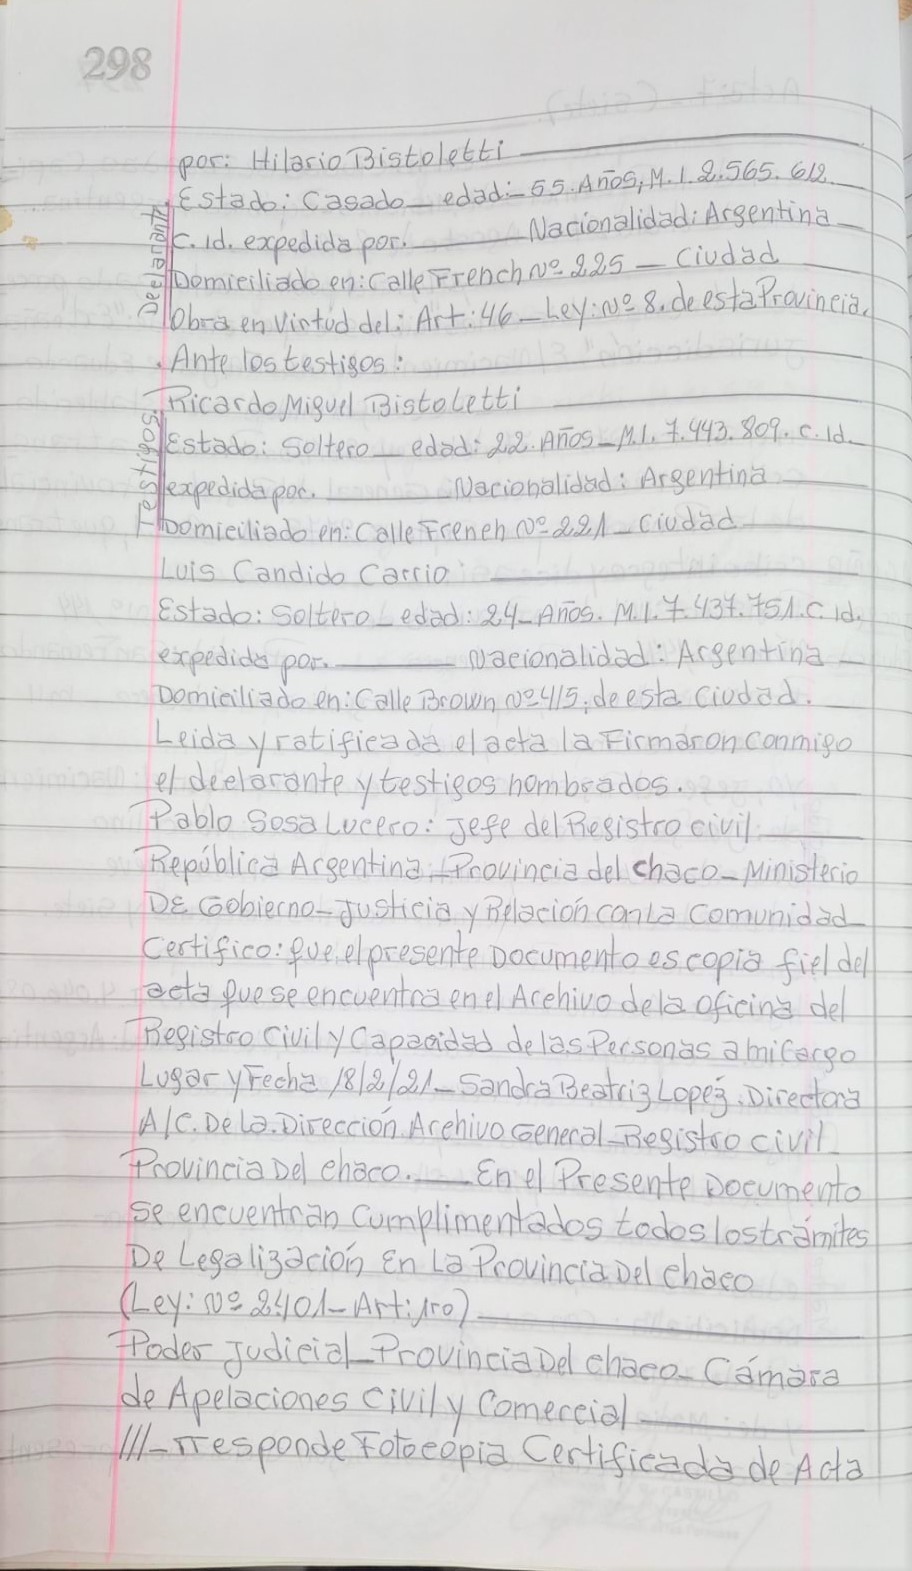 298
por: Hilario Bistoletti
Estado: Casado_ edad:_ 55. Años, M.I. 2.565.612
C. id. expedida por. ____ Nacionalidad: Argentina
Domiciliado en: Calle French Nº 225 _ Ciudad
Obra en Virtud del: Art: 46 _ Ley: Nº 8. de esta Provincia.
Declarante
. Ante los testigos:
Ricardo Miguel Bistoletti
Estado: Soltero _ edad: 22. Años _ M.I. 7.443.809. C. Id.
expedida por. ____ Nacionalidad: Argentina
Domiciliado en: Calle French Nº 221 _ Ciudad
Testigos.
Luis Candido Carrio
Estado: Soltero _ edad: 24_ Años. M.I. 7.437.751. C. id.
expedida por. ____ Nacionalidad: Argentina _
Domiciliado en: Calle Brown Nº 415, de esta Ciudad.
Leida y ratificada el acta la Firmaron conmigo
el declarante y testigos nombrados.
Pablo Sosa Lucero: Jefe del Registro civil
República Argentina _ Provincia del chaco _ Ministerio
De Gobierno _ Justicia y Relación con La Comunidad
Certifico: que el presente Documento es copia fiel del
acta que se encuentra en el Archivo de la oficina del
Registro Civil y Capacidad de las Personas a mi Cargo
Lugar y Fecha 18/2/21 _ Sandra Beatriz Lopez. Directora
A/C. De La. Dirección Archivo General _ Registro civil
Provincia Del chaco. ____ En el Presente Documento
se encuentran Cumplimentados todos los trámites
De Legalización En La Provincia Del chaco
(Ley: Nº 2401 _ Art: 1ro)
Poder Judicial _ Provincia Del chaco _ Cámara
de Apelaciones Civil y Comercial
///_rresponde Fotocopia Certificada de Acta